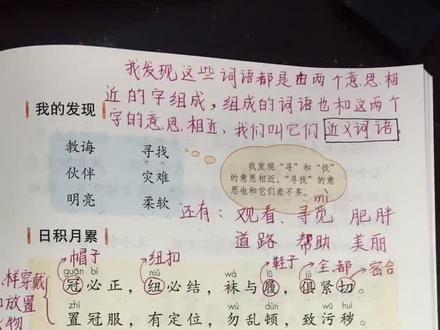 我发现这些词语都是由两个意思相
近的字组成，组成的词语也和这两个
字的意思相近，我们叫它们近义词语。
我的发现
教诲 寻找
伙伴 灾难
明亮 柔软
我发现“寻”和“找”
的意思相近，“寻找”的意
思也和它们差不多。
mì
还有：观看、寻觅 肥胖
道路 帮助 美丽
日积月累
帽子 纽扣 鞋子 全都 密合
guān bì niǔ wà lǚ jù qiè
冠必正，纽必结，袜与履，俱紧切。
样穿戴
和放置
物
zhì dùn zhì huì
置冠服，有定位，勿乱顿，致污秽。